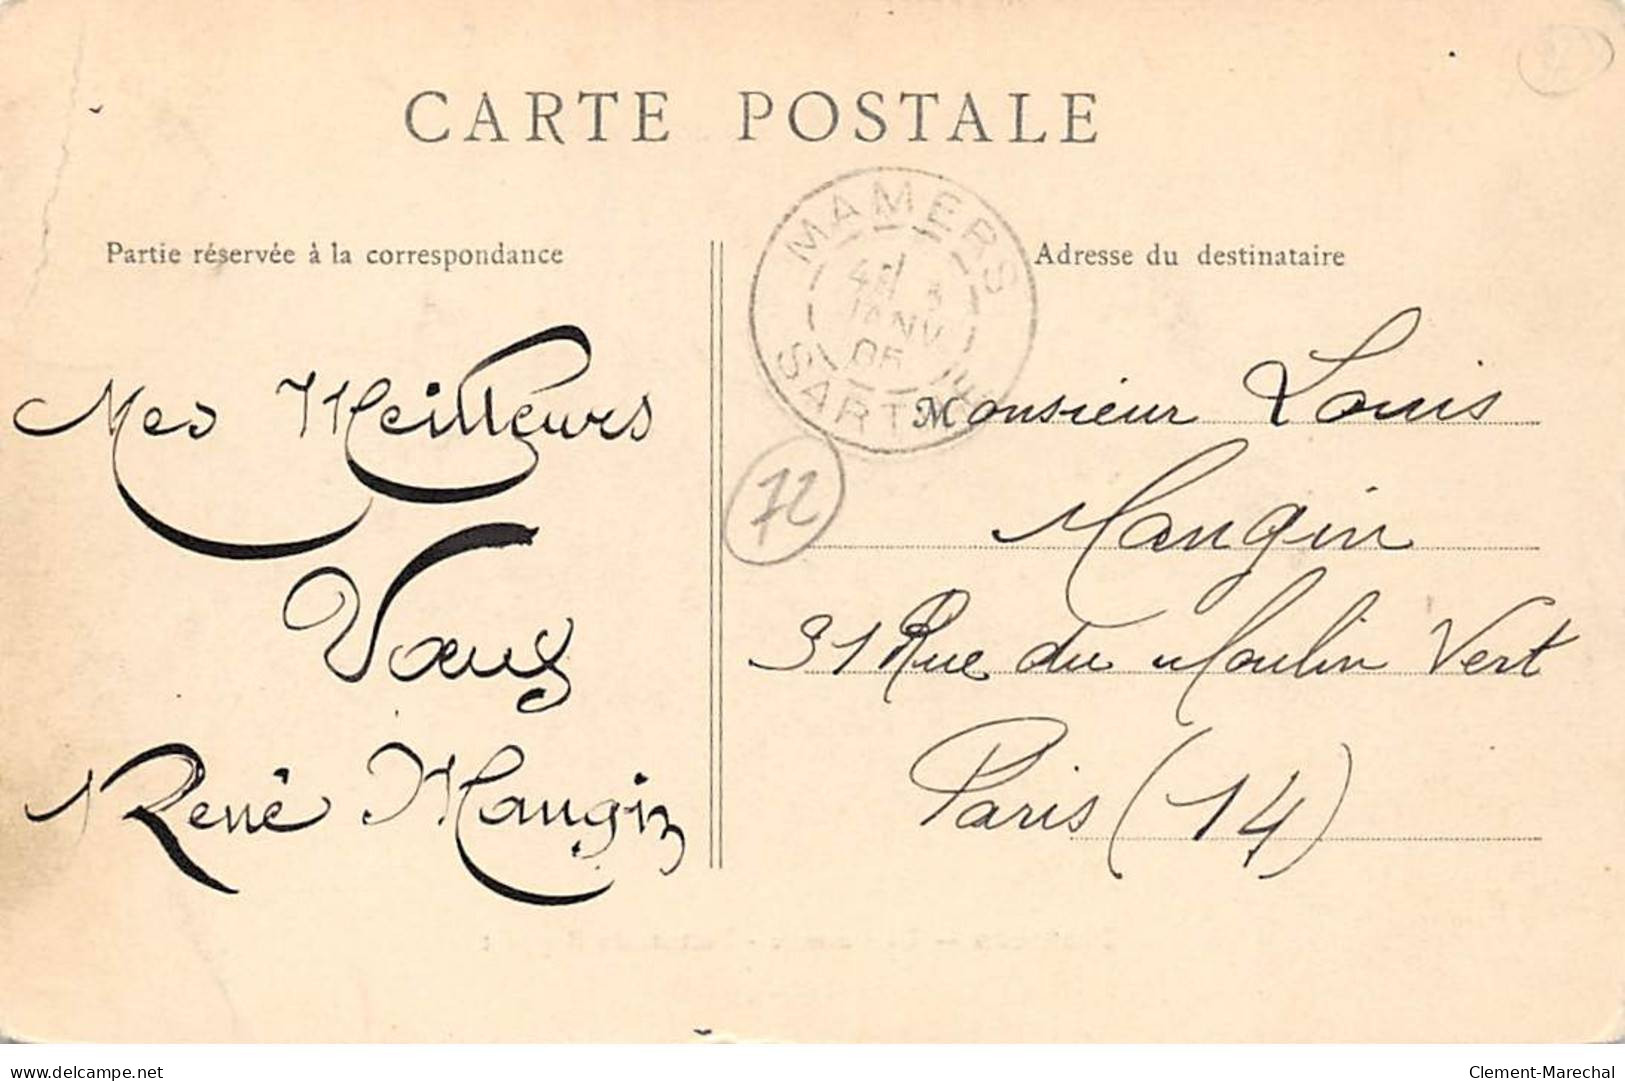 CARTE POSTALE
MAMERS
4E 3
JANV
05
SARTHE
Partie réservée à la correspondance
Adresse du destinataire
Mes Meilleurs
Vœux
René Mangin
72
Monsieur Louis
Mangin
31 Rue du Moulin Vert
Paris (14)
delcampe.net
Clement-Marechal